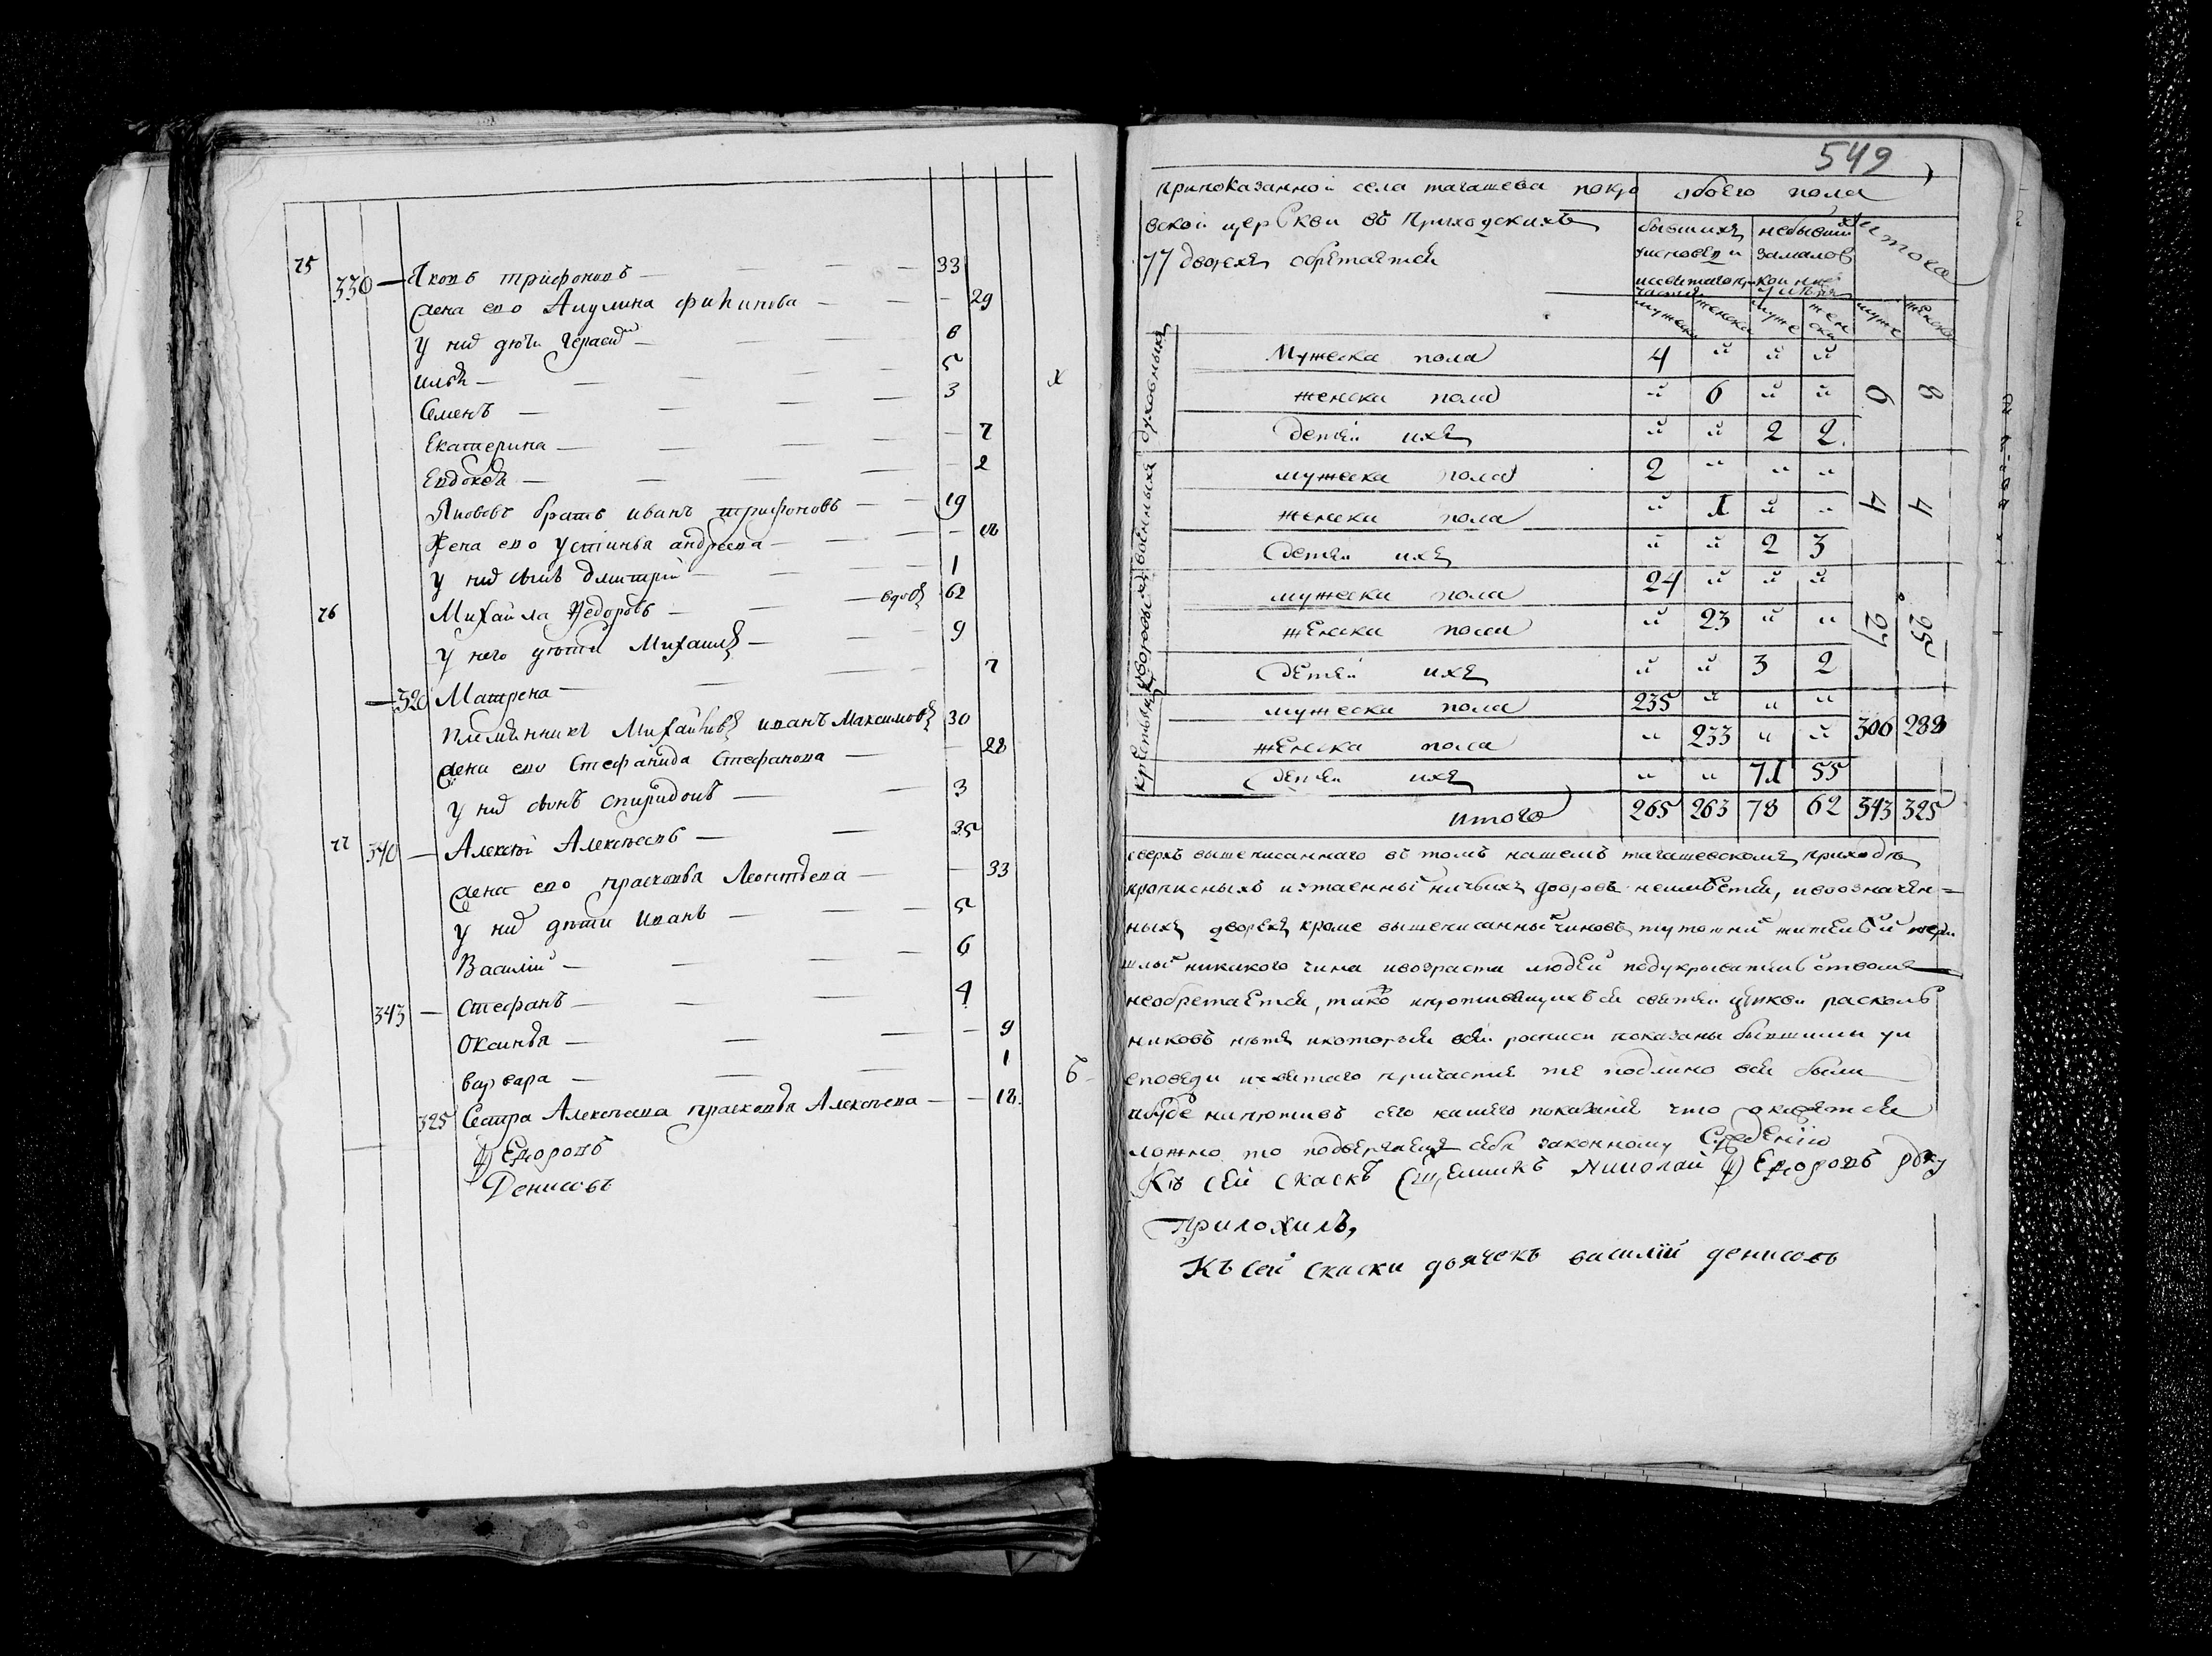 75 330 — Яковъ трифоновъ — 33
Жена ево Акулина филипова — 29
У них дѣти Герасим — 6
Илья — 5
Семенъ — 3
Екатерина — 7
Евдокея — 2
Яковлевъ братъ иванъ трифоновъ — 19
Жена ево устинья андреева — 18
У них сынъ дмитрій — 1
76 Михайла Федоровъ — вдовъ 62
У него дѣти Михаилъ — 9
— 320 Матрена — 7
племянникъ Михайловъ иванъ Максимовъ 30
Жена ево Стефанида Стефанова — 28
У них сынъ спиридонъ — 3
77 340 — Алексѣй Алексѣевъ — 35
Жена ево прасковья Леонтьева — 33
У них дѣти иванъ — 5
Василій — 6
343 — Стефанъ — 4
Оксинья — 9
варвара — 1
325 Сестра Алексѣева прасковья Алексѣева — 18.
Федоровъ
Денисовъ
549
При показанной села тагашева покро
вской церкви въ Приходскихъ
77 дворехъ обретается
обоего пола
бывшихъ
небывших
итого
мужеска женска муже женска муже женска
духовныхъ
Мужеска пола 4 " " "
женска пола " 6 " " 6 8
Детей ихъ " " 2 2.
военныхъ
мужеска пола 2 " " "
женска пола " 1 " " 4 4
Детей ихъ " " 2 3
дворовыхъ
мужеска пола 24 " " "
женска пола " 23 " " 27 25
Детей ихъ " " 3 2
крестьянъ
мужеска пола 235 " " "
женска пола " 233 " " 306 288
Детей ихъ " " 71 55
итого 265 263 78 62 343 325
сверхъ вышеписаннаго въ томъ нашемъ тагашевскомъ приходѣ
прописныхъ и утаенный ничьихъ дворовъ неимѣется, ивоозначен=
ныхъ дворехъ кроме вышеписанный чиновъ тутошний жителей и
шлый никакого чина ивозраста людей подукрывателствомъ
необретается, тако ипротивящихъся святей церкви расколь
никовъ нѣтъ икоторыя всей росписи показаны бывшими уи
споведи исвятаго причастия те подлино все были
ибуде напротивъ сего нашего показания что окажется
ложно то подвергаемъ себя законному Суждению
Къ сей скаскѣ Священникъ Николай Федоровъ руку
приложилъ,
Къ сей скаски дьячекъ василій денисовъ